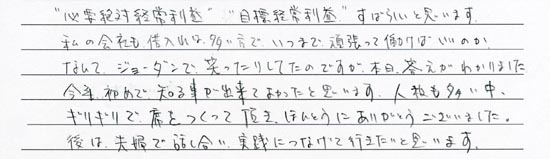 "必要絶対経常利益" "目標経常利益" すばらしいと思います。
私の会社も、借入れは、多い方で、いつまで、頑張って働けばいいのか
なんて、ジョーダンで、笑ったりしてたのですが、本日、答えがわかりました
今年、初めて、知る事が出来てよかったと思います。人数も多い中、
ギリギリで、席をつくって頂き、ほんとうにありがとうございました。
後は、夫婦で話し合い、実践につなげて行きたいと思います。